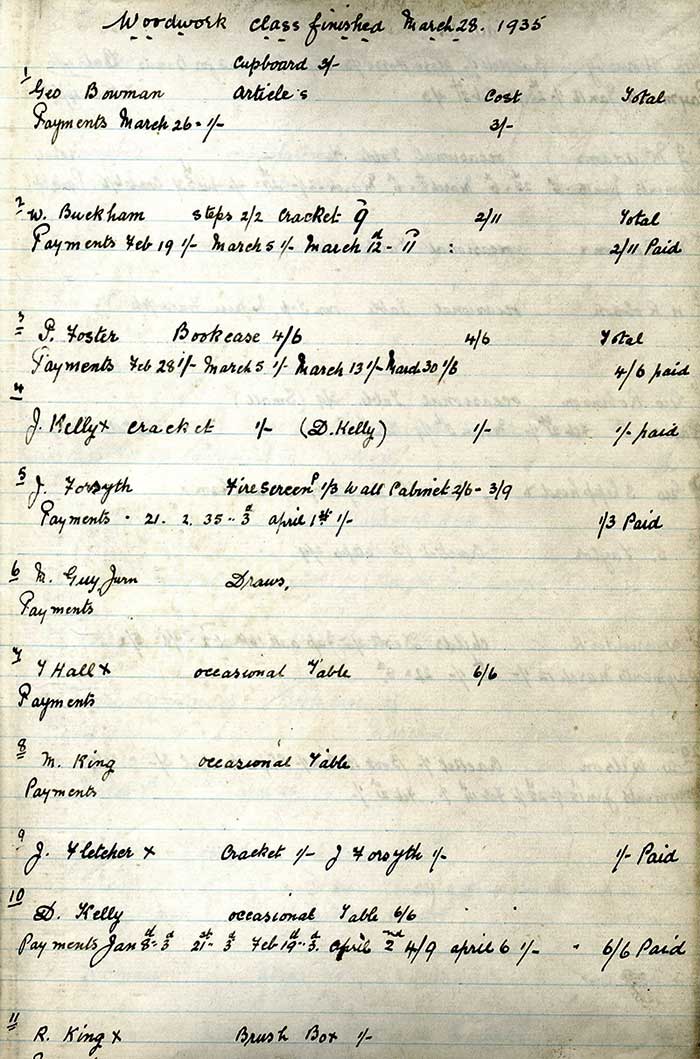 Woodwork class finished March 28. 1935
Cupboard 3/-
1 Geo Bowman Article s Cost Total
Payments March 26 = 1/- 3/-
2 W. Buckham Steps 2/2 Cracket 9 2/11 Total
Payments Feb 19 1/- March 5 1/- March 12 - 11 : 2/11 Paid
3 P. Foster Bookcase 4/6 4/6 Total
Payments Feb 28 1/- March 5 1/- March 13 1/- March 30 1/6 4/6 paid
4
J. Kelly x cracket 1/- (D. Kelly) 1/- 1/- paid
5 J. Forsyth Fire Screen 1/3 Wall Cabinet 2/6 - 3/9
Payments - 21. 2. 35 .. 3d april 1st 1/- 1/3 Paid
6 M. Guy Draws,
Payments
7 T Hall x occasional Table 6/6
Payments
8 M. King occasional Table
Payments
9 J. Fletcher x Cracket 1/- J Forsyth 1/- 1/- Paid
10 D. Kelly occasional Table 6/6
Payments Jan 8 - 3d 21st 3d Feb 19 - 3d. april 2nd 4/9 april 6 1/- " 6/6 Paid
11 R. King x Brush Box 1/-